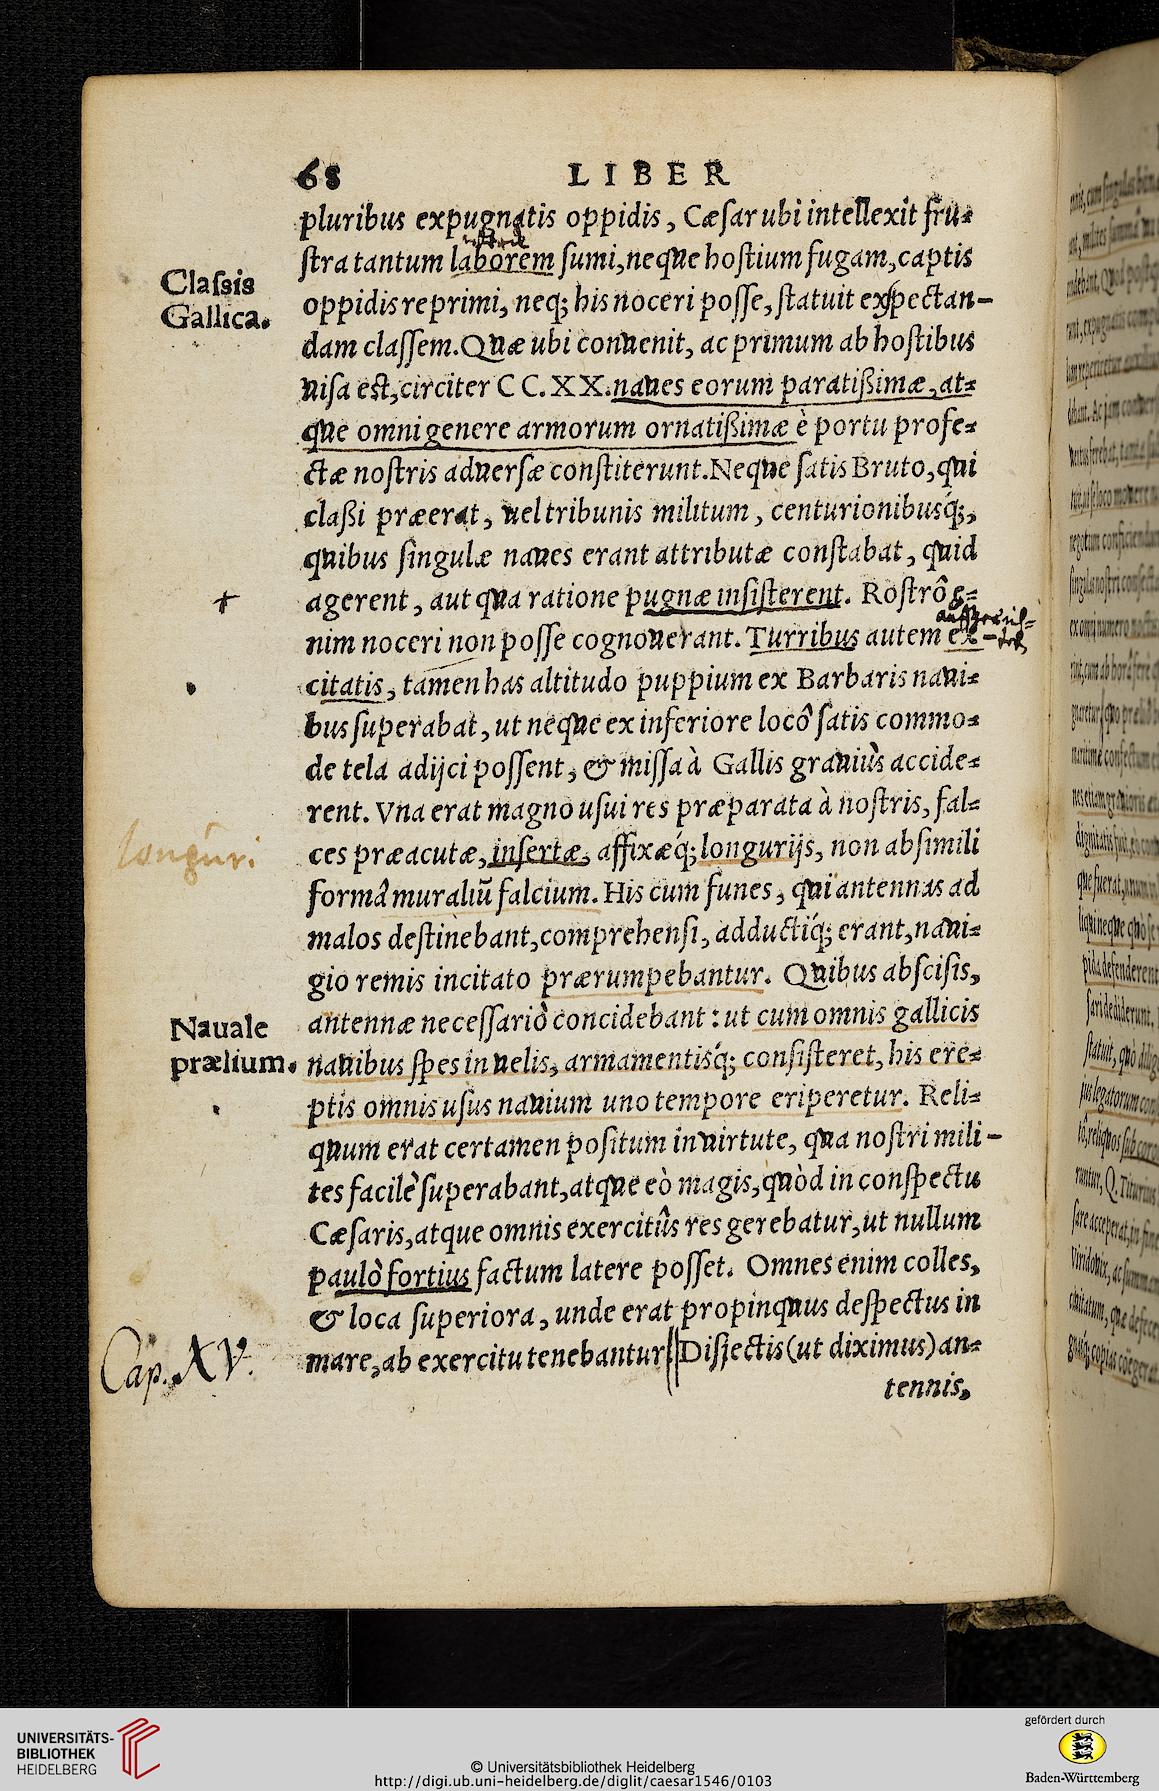 68 LIBER
pluribus expugnatis oppidis, Cæſar ubi intellexit fru-
ſtra tantum laborem ſumi, neque hoſtium fugam, captis
Claſsis
Gallica.
oppidis reprimi, neq; his noceri poſſe, ſtatuit exſpectan-
dam claſſem. Quæ ubi conuenit, ac primum ab hoſtibus
uiſa eſt, circiter CC.XX. naues eorum paratißimæ, at-
que omni genere armorum ornatißimæ è portu profe-
ctæ noſtris aduerſæ conſtiterunt. Neque ſatis Bruto, qui
claßi præerat, uel tribunis militum, centurionibusq́;,
quibus ſingulæ naues erant attributæ conſtabat, quid
agerent, aut qua ratione pugnæ inſiſterent. Roſtrô e-
nim noceri non poſſe cognouerant. Turribus autem ex-
citatis, tamen has altitudo puppium ex Barbaris naui-
bus ſuperabat, ut neque ex inferiore locô ſatis commo-
de tela adijci poſſent, & miſſa à Gallis grauiùs accide-
rent. Vna erat magno uſui res præparata à noſtris, fal-
longuri
ces præacutæ, inſertæ, affixæq́; longurijs, non abſimili
formâ muraliũ falcium. His cum funes, qui antennas ad
malos deſtinebant, comprehenſi, adductiq́; erant, naui-
gio remis incitato prærumpebantur. Quibus abſciſis,
Nauale
prælium.
antennæ neceſſariò concidebant: ut cum omnis gallicis
nauibus ſpes in uelis, armamentisq́; conſiſteret, his ere-
ptis omnis uſus nauium uno tempore eriperetur. Reli-
quum erat certamen poſitum in uirtute, qua noſtri mili-
tes facilè ſuperabant, atque eò magis, quòd in conſpectu
Cæſaris, atque omnis exercitûs res gerebatur, ut nullum
paulò fortius factum latere poſſet. Omnes enim colles,
& loca ſuperiora, unde erat propinquus deſpectus in
Cap. XV.
mare, ab exercitu tenebantur. Diſiectis (ut diximus) an-
tennis,
UNIVERSITÄTS-
BIBLIOTHEK
HEIDELBERG
© Universitätsbibliothek Heidelberg
http://digi.ub.uni-heidelberg.de/diglit/caesar1546/0103
gefördert durch
Baden-Württemberg